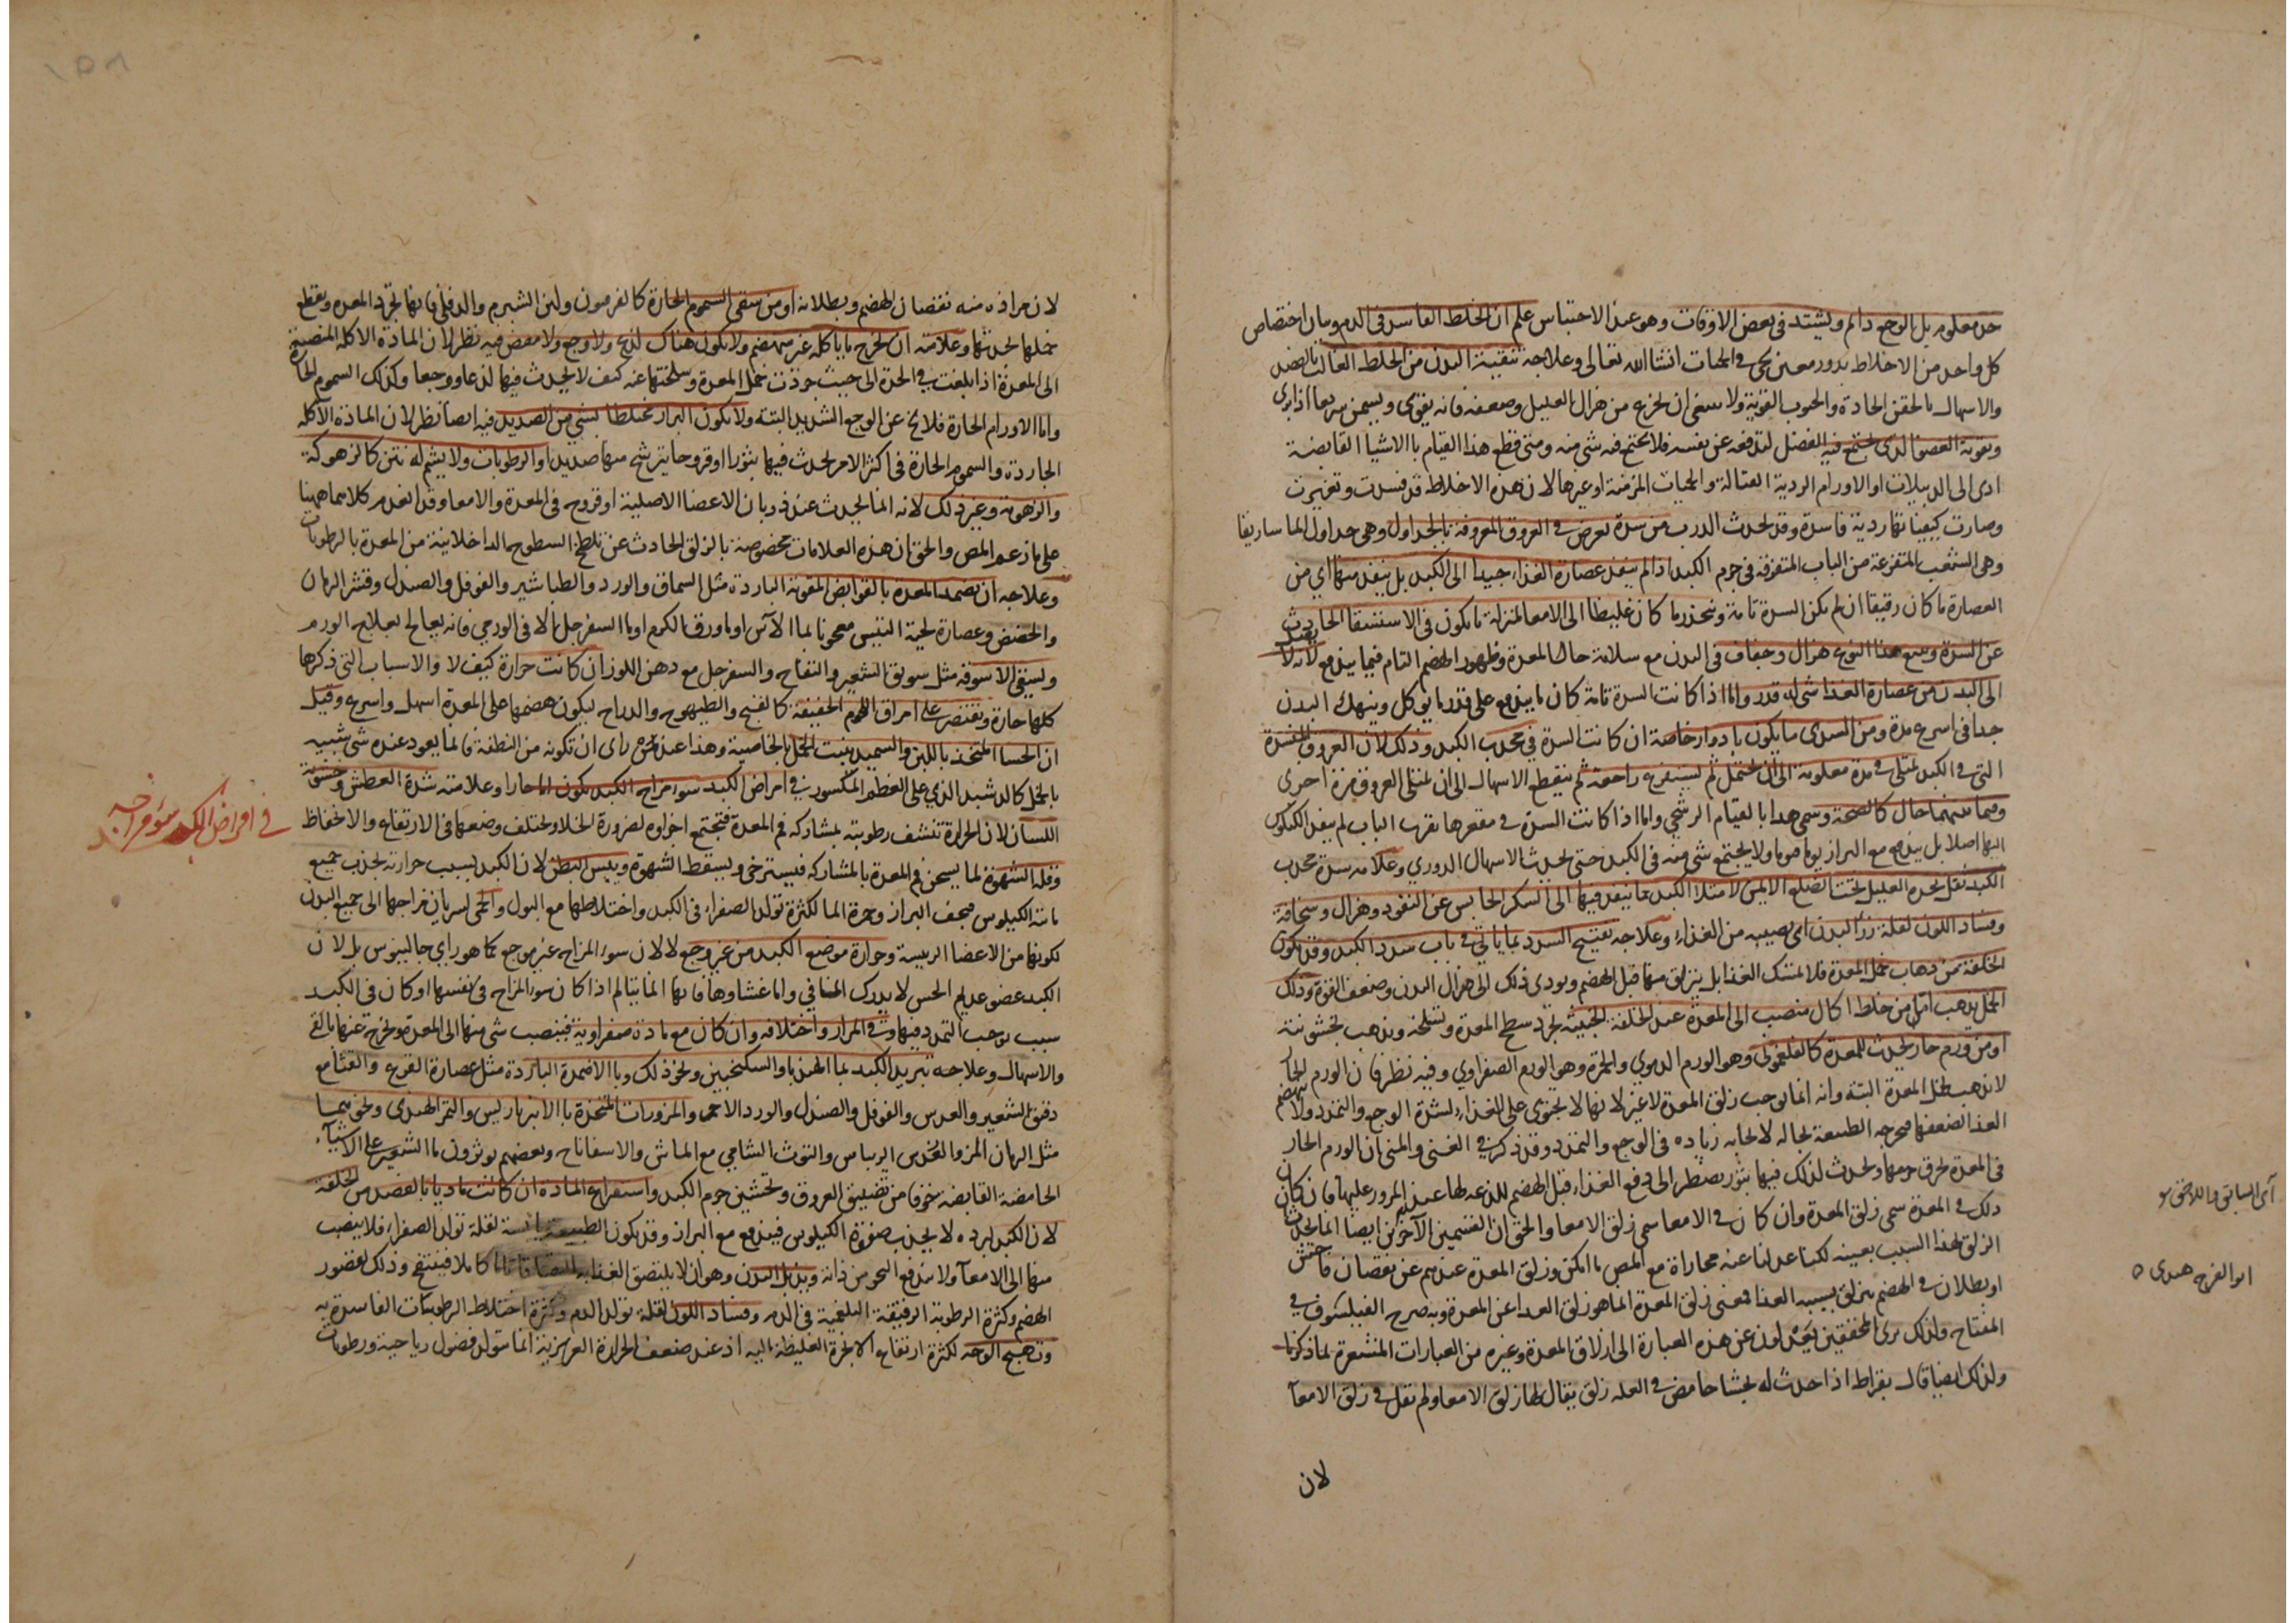 حد معلوم بل الوجع دائم ويشتد في بعض الاوقات وهو عند الاحتباس علم ان الخلط الفاسد في الدم وبيان اختصاص
كل واحد من الاخلاط بدور معين يجئ في الحميات انشا الله تعالى وعلاجه تنقية البدن من الخلط الغالب بالفصد
والاسهال بالحقن الحادة والحبوب القوية ولا ينبغي ان يجزع من هزال العليل وضعفه فانه يقوى ويسمن سريعا اذا برئ
وتقوية العضو الذي يجتمع فيه الفضل ليدفعه عن نفسه فلا يجتمع فيه شي منه ومتى قطع هذا القيام بالاشيا القابضة
ادى الى الدبيلات او الاورام الردية القتالة والحميات المزمنة او غيرها لان هذه الاخلاط قد فسدت وتغيرت
وصارت كيفياتها ردية فاسدة وقد يحدث الذرب من سدة تعرض في العروق المعروفة بالجداول وهي جداول الماساريقا
وهي الشعب المتفرعة من الباب المتفرقة في جرم الكبد اذا لم ينفذ عصارة الغذاء جيدا الى الكبد بل ينفذ منها اي من
العصارة ما كان رقيقا ان لم يكن السدة تامة وينحدر ما كان غليظا الى الامعا بمنزلة ما يكون في الاستسقا الحادث
عن السدة ويتبع هذا النوع هزال وجفاف في البدن مع سلامة حال المعدة وظهور الهضم التام فيما يندفع لانه لا ينفذ
الى البدن من عصارة الغذا شي له قدر واما اذا كانت السدة تامة كان ما يندفع على قدر ما يوكل وينهك البدن
جدا في اسرع مدة ومن السددي ما يكون بادوار خاصة ان كانت السدة في محدب الكبد وذلك لان العروق المنسدة
التي في الكبد تمتلي في مدة معلومة الى ان يحتمل ثم يستفرغ راجعة ثم ينقطع الاسهال الى ان تمتلى العروق مرة اخرى
وفيما بينهما حال كالصحة وسمي هذا بالقيام الرشحي واما اذا كانت السدة في مقعرها بقرب الباب لم ينفذ الكيلوس
اليها اصلا بل يندفع مع البراز يوما فيوما ولا يجتمع شي منه في الكبد حتى يحدث الاسهال الدوري وعلامة سدة محدب
الكبد ثقل يجده العليل تحت الضلع الايمن لامتلاء الكبد بما ينفذ فيها الى السكر الحابس عن النفوذ وهزال وسخافة
وفساد اللون لقلة رزء البدن اي نصيبه من الغذاء وعلاجه تفتيح السدد بما ياتي في باب سدد الكبد وقد يكون
الخلفة من ذهاب خمل المعدة فلا تمسك الغذا بل ينزلق منها قبل الهضم ويودى ذلك الى هزال البدن وضعف القوة وذلك
الخمل يذهب اما من خلط اكال منصب الى المعدة عند الخلفة الخبيثة يجرد سطح المعدة وتسلخه ويذهب بخشونته
او من ورم حار يحدث للمعدة كالفلغموني وهو الورم الدموي والحمرة وهو الورم الصفراوي وفيه نظر فان الورم الحار
لا يذهب بخمل المعدة البتة وانه انما يوجب زلق المعدة لا غير لانها لا تحتوى على الغذاء لشدة الوجع والتمدد ولا ينهضم
الغذا لضعفها فيخرجه الطبيعة بحاله لايجابه زياده في الوجع والتمدد وقد ذكر في الغنى والمنى ان الورم الحار
في المعدة يحرق خملها ويحدث لذلك فيها بثور يضطر الى دفع الغذاء قبل الهضم للذعه لها عند المرور عليها فان كان
ذلك في المعدة سمي زلق المعدة وان كان في الامعا سمي زلق الامعا والحق ان القسمين الآخرين ايضا انما يحدث
الزلق لهذا السبب بعينه لكنا عدلنا عنه مجاراة مع المص ما امكن وزلق المعدة عندهم عن نقصان فاحش
او بطلان في الهضم ينزلق بسببه الغذا فمعنى زلق المعدة انما هو زلق الغذا عن المعدة وبه صرح الفيلسوف في
المفتاح ولذلك ترى المحققين يعدلون عن هذه العبارة الى ازلاق المعدة وغيره من العبارات المشعرة بما ذكرنا
ولذلك ايضا قال بقراط اذا حدث له جشا حامض في العلة زلق يقال لها زلق الامعا ولم يقل في زلق الامعآ
لان
اي السابق واللاحق
ابو الفرج هندى
لان مراده منه نقصان الهضم وبطلانه او من سقى السموم الحارة كالفربيون ولبن الشبرم والدفلى فانها تجرد المعدة ويقطع
خملها لحدتها وعلامته ان يخرج ما ياكله غير منهضم ولا يكون هناك لذع ولا وجع ولا مغص فيه نظر لان المادة الاكالة المنصبة
الى المعدة اذا بلغت في الحدة الى حيث جردت خمل المعدة وسلختها عنه كيف لا يحدث فيها لذعا ووجعا وكذلك السموم الحارة
واما الاورام الحارة فلا يخ عن الوجع الشديد البتة ولا يكون البراز مختلطا بشي من الصديد فيه ايضا نظر لان المادة الاكالة
الجاردة والسموم الحارة في اكثر الامر يحدث فيها بثورا او قروحا يترشح منها صديد او الرطوبات ولا يشم له نتن كالزهوكة
والزهومة وغير ذلك لانه انما يحدث عند ذوبان الاعضا الاصلية او قروح في المعدة والامعا وقد انعدم كلاهما ههنا
على ما زعم المص والحق ان هذه العلامات مخصوصة بالزلق الحادث عن تلطخ السطوح الداخلانية من المعدة بالرطوبات
وعلاجه ان تضمد المعدة بالقوابض المقوية الباردة مثل السماق والورد والطباشير والفوفل والصندل وقشر الرمان
والحضض وعصارة لحية التيس معجونا بما الآس او ماورق الكرم او ما السفرجل الا في الورمي فانه يعالج بعلاج الورم
ويسقى الاسوقة مثل سويق الشعير والتفاح والسفرجل مع دهن اللوز ان كانت حرارة كيف لا والاسباب التي ذكرها
كلها حارة ويقتصر على امراق اللحوم الخفيفة كالقبج والطيهوج والدراج ليكون هضمها على المعدة اسهل واسرع وقيل
ان الحسا المتخذ باللبن والسميد ينبت الخمل بالخاصية وهذا عند من راى ان تكونه من النطفة فانما يعود عنده شي شبيه
بالخمل كالدشبد الذي على العظم المكسور في امراض الكبد سوء مزاج الكبد يكون اما حارا وعلامته شدة العطش وخشونة
اللسان لان الحرارة تنشف رطوبته بمشاركة فم المعدة فتجتمع اجزاؤه لضرورة الخلا ويختلف وضعها في الارتفاع والانخفاظ
وقلة الشهوة لما يسخن فم المعدة بالمشاركة فيسترخى ويسقط الشهوة ويبس البطن لان الكبد بسبب حرارته يجذب جميع
مائية الكيلوس فيجف البراز وحمرة الما لكثرة تولد الصفراء في الكبد واختلاطها مع البول والحمى لسريان مزاجها الى جميع البدن
لكونها من الاعضا الرئيسة وحرارة موضع الكبد من غير وجع لا لان سوء المزاج غير موجع كما هو راي جالينوس بل لان
الكبد عضو عديم الحس لا يدرك المنافي واما غشاوها فانها انما يتالم اذا كان سوء المزاج في نفسها او كان في الكبد
سبب يوجب التمدد فيها وفي المرار واختلافه وان كان مع مادة صفراوية فينصب شي منها الى المعدة ويخرج عنها بالقئ
والاسهال وعلاجه تبريد الكبد بما الهندبا والسكنجبين ونحو ذلك وبالاضمدة الباردة مثل عصارة القرع والقثا مع
دقيق الشعير والعدس والفوفل والصندل والورد الاحمر والمزورات المتخذة بالانبرباريس والتمر الهندى ونحوهما
مثل الرمان المز والعدس الريباس والتوت الشامي مع الماش والاسفاناخ وبعضهم يوثرون ما الشعير على الاشيآء
الحامضة القابضة خوفا من تضييق العروق وتخشين جرم الكبد واستفراغ المادة ان كانت ماديا بالفصد من الخلفة
لان الكبد لبرده لا يجذب صفوة الكيلوس فيندفع مع البراز وقد يكون الطبيعة يابسة لقلة تولد الصفراء فلا ينصب
منها الى الامعآ ولا يندفع النجو من ذاته وتذبل البدن وهو ان لا يلتصق الغذا به التصاقا تاما كاملا فينتفخ وذلك لقصور
الهضم وكثرة الرطوبة الرقيقة البلغمية في الدم وفساد اللون لقلة تولد الدم وكثرة اختلاط الرطوبات الفاسدة به
وتهيج الوجه لكثرة ارتفاع الابخرة الغليظة اليه اذ عند ضعف الحرارة الغريزية انما يتولد فضول رياحية ورطوبات
في امراض الكبد سوء مزاجه
١٥٨